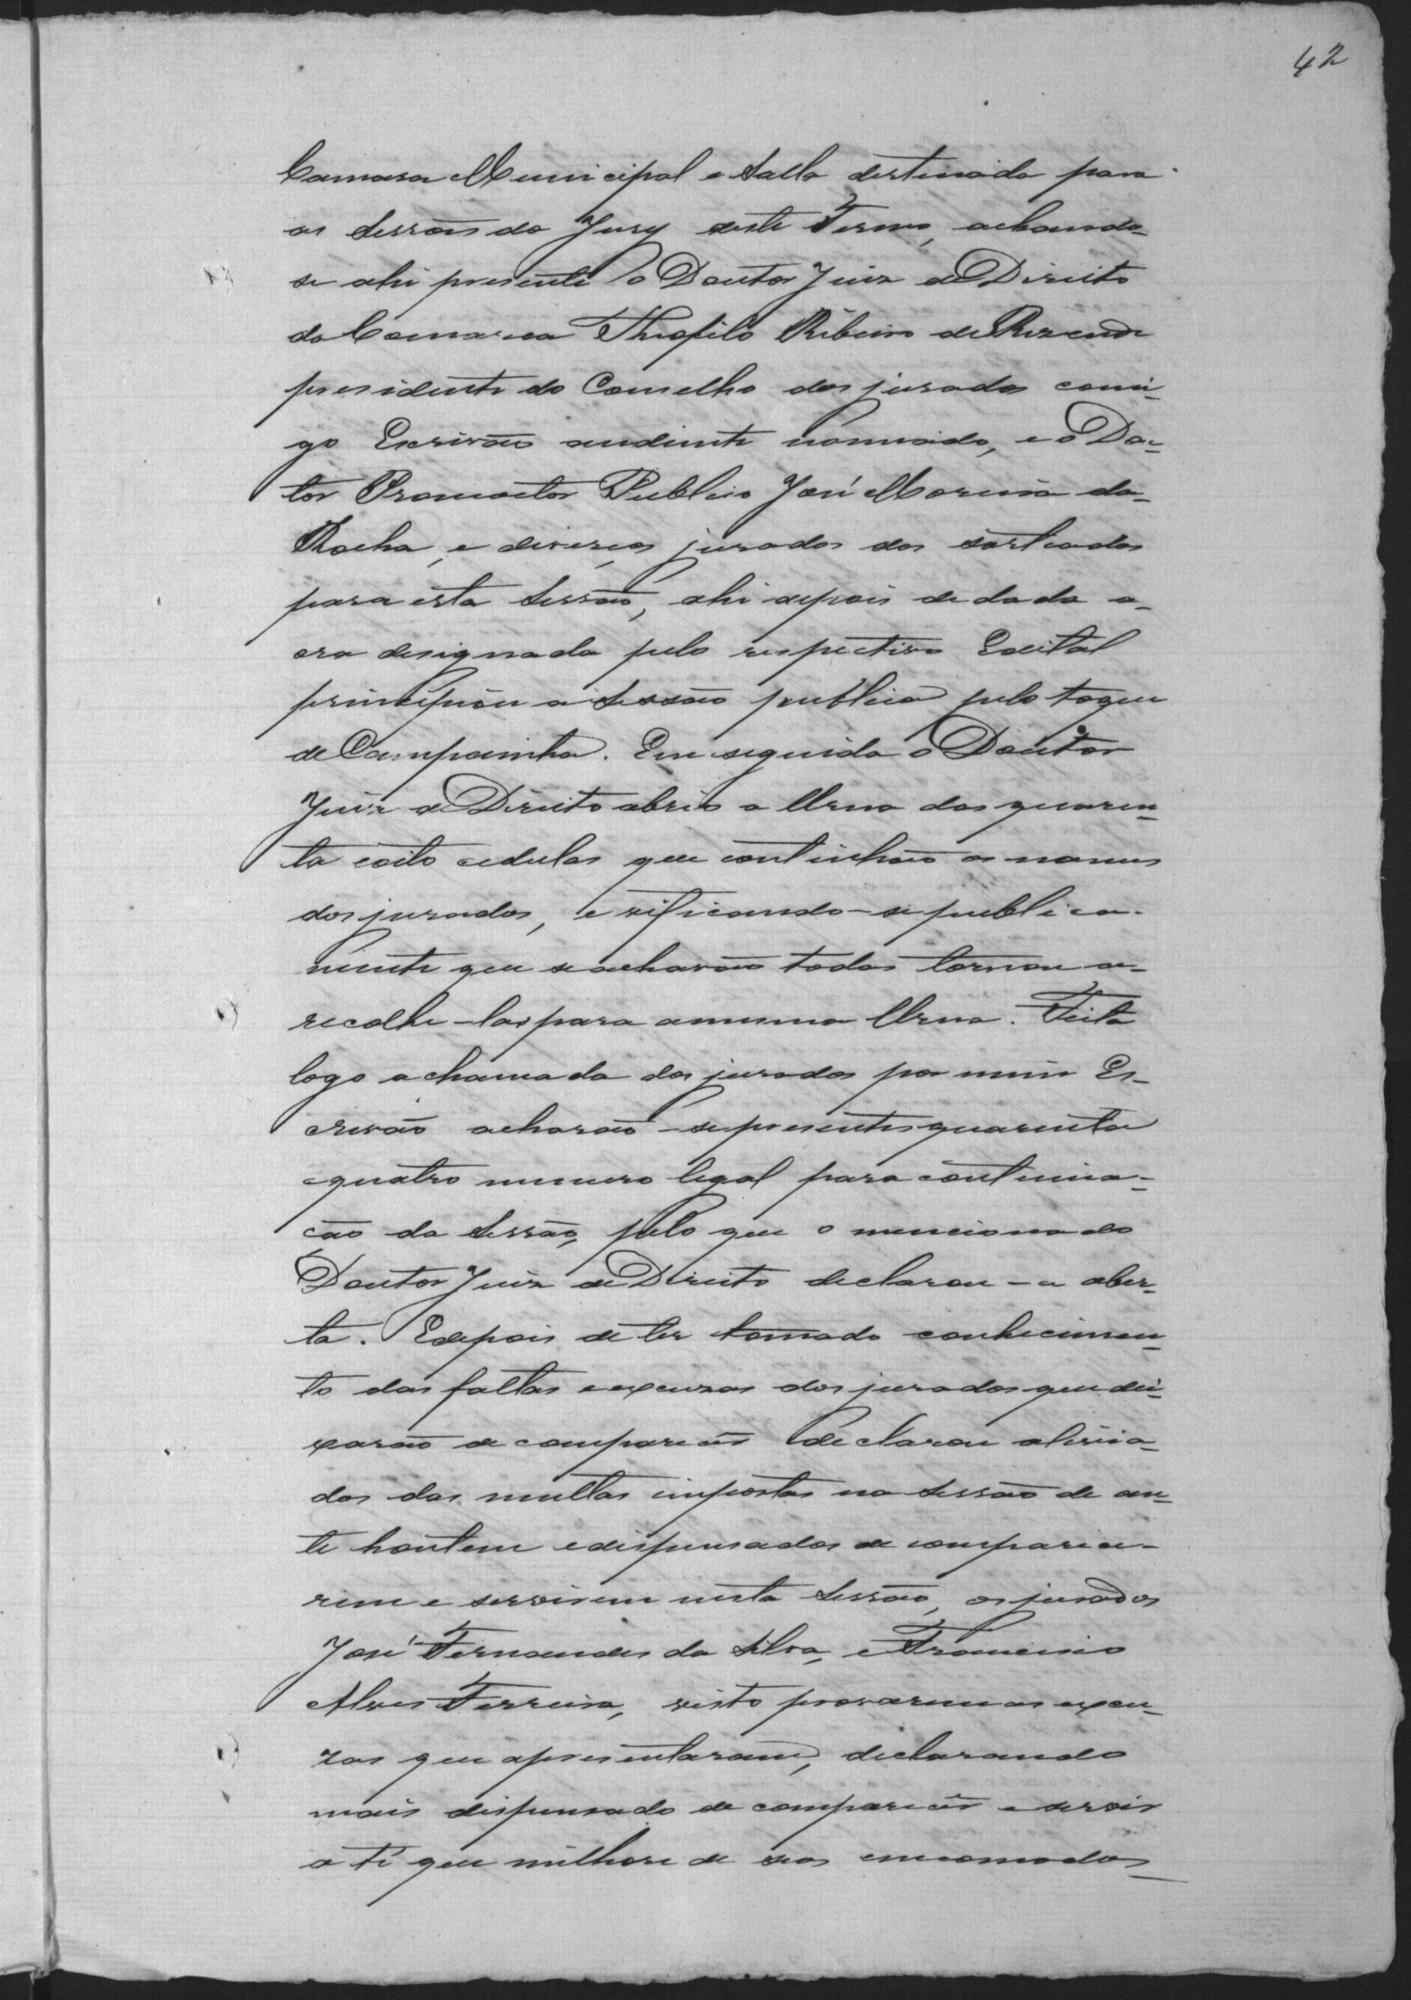 42
Camara Municipal e Salla destinada para
as Sessões do Jury deste Termo, achando-
se ahi presente o Doutor Juiz de Direito
da Comarca Theofilo Ribeiro de Rezende
presidente do Conselho dos jurados comi-
go Escrivão audiante nomiado, e o Dou-
tor Promoctor Publico José Moreira da
Rocha, e diverços jurados dos sorteados
para esta Sessão, ahi depois de dada a
ora designada pelo respectivo Edital
principiou a Sessão publica pelo toque
de Campainha. Em seguida o Doutor
Juiz de Direito abrio a Urna das quaren-
ta eoito cedulas que continhão os nomes
dos jurados, e vificando-se publica-
mente que se achavão todas tornou a
recolhe-las para amesma Urna. Feita
logo a chamada dos jurados por mim Es-
crivão acharão-se presentes quarenta
equatro numero legal para continua-
ção da Sessão, pelo que o mencionado
Doutor Juiz de Direito declarou-a aber-
ta. Edepois de ter tomado conhecimen-
to das faltas eexcuzas dos jurados que dei-
xarão de comparecer declarou alivia-
dos das multas impostas na Sessão de an-
te hontem edispensados de comparece-
rem e servirem nesta Sessão, os jurados
José Fernandes da Silva, e Francisco
Alves Ferreira, visto provarem as excu-
zas que apresentaram, declarando
mais dispensado de comparecer e servir
a té que milhore de seos encomodos